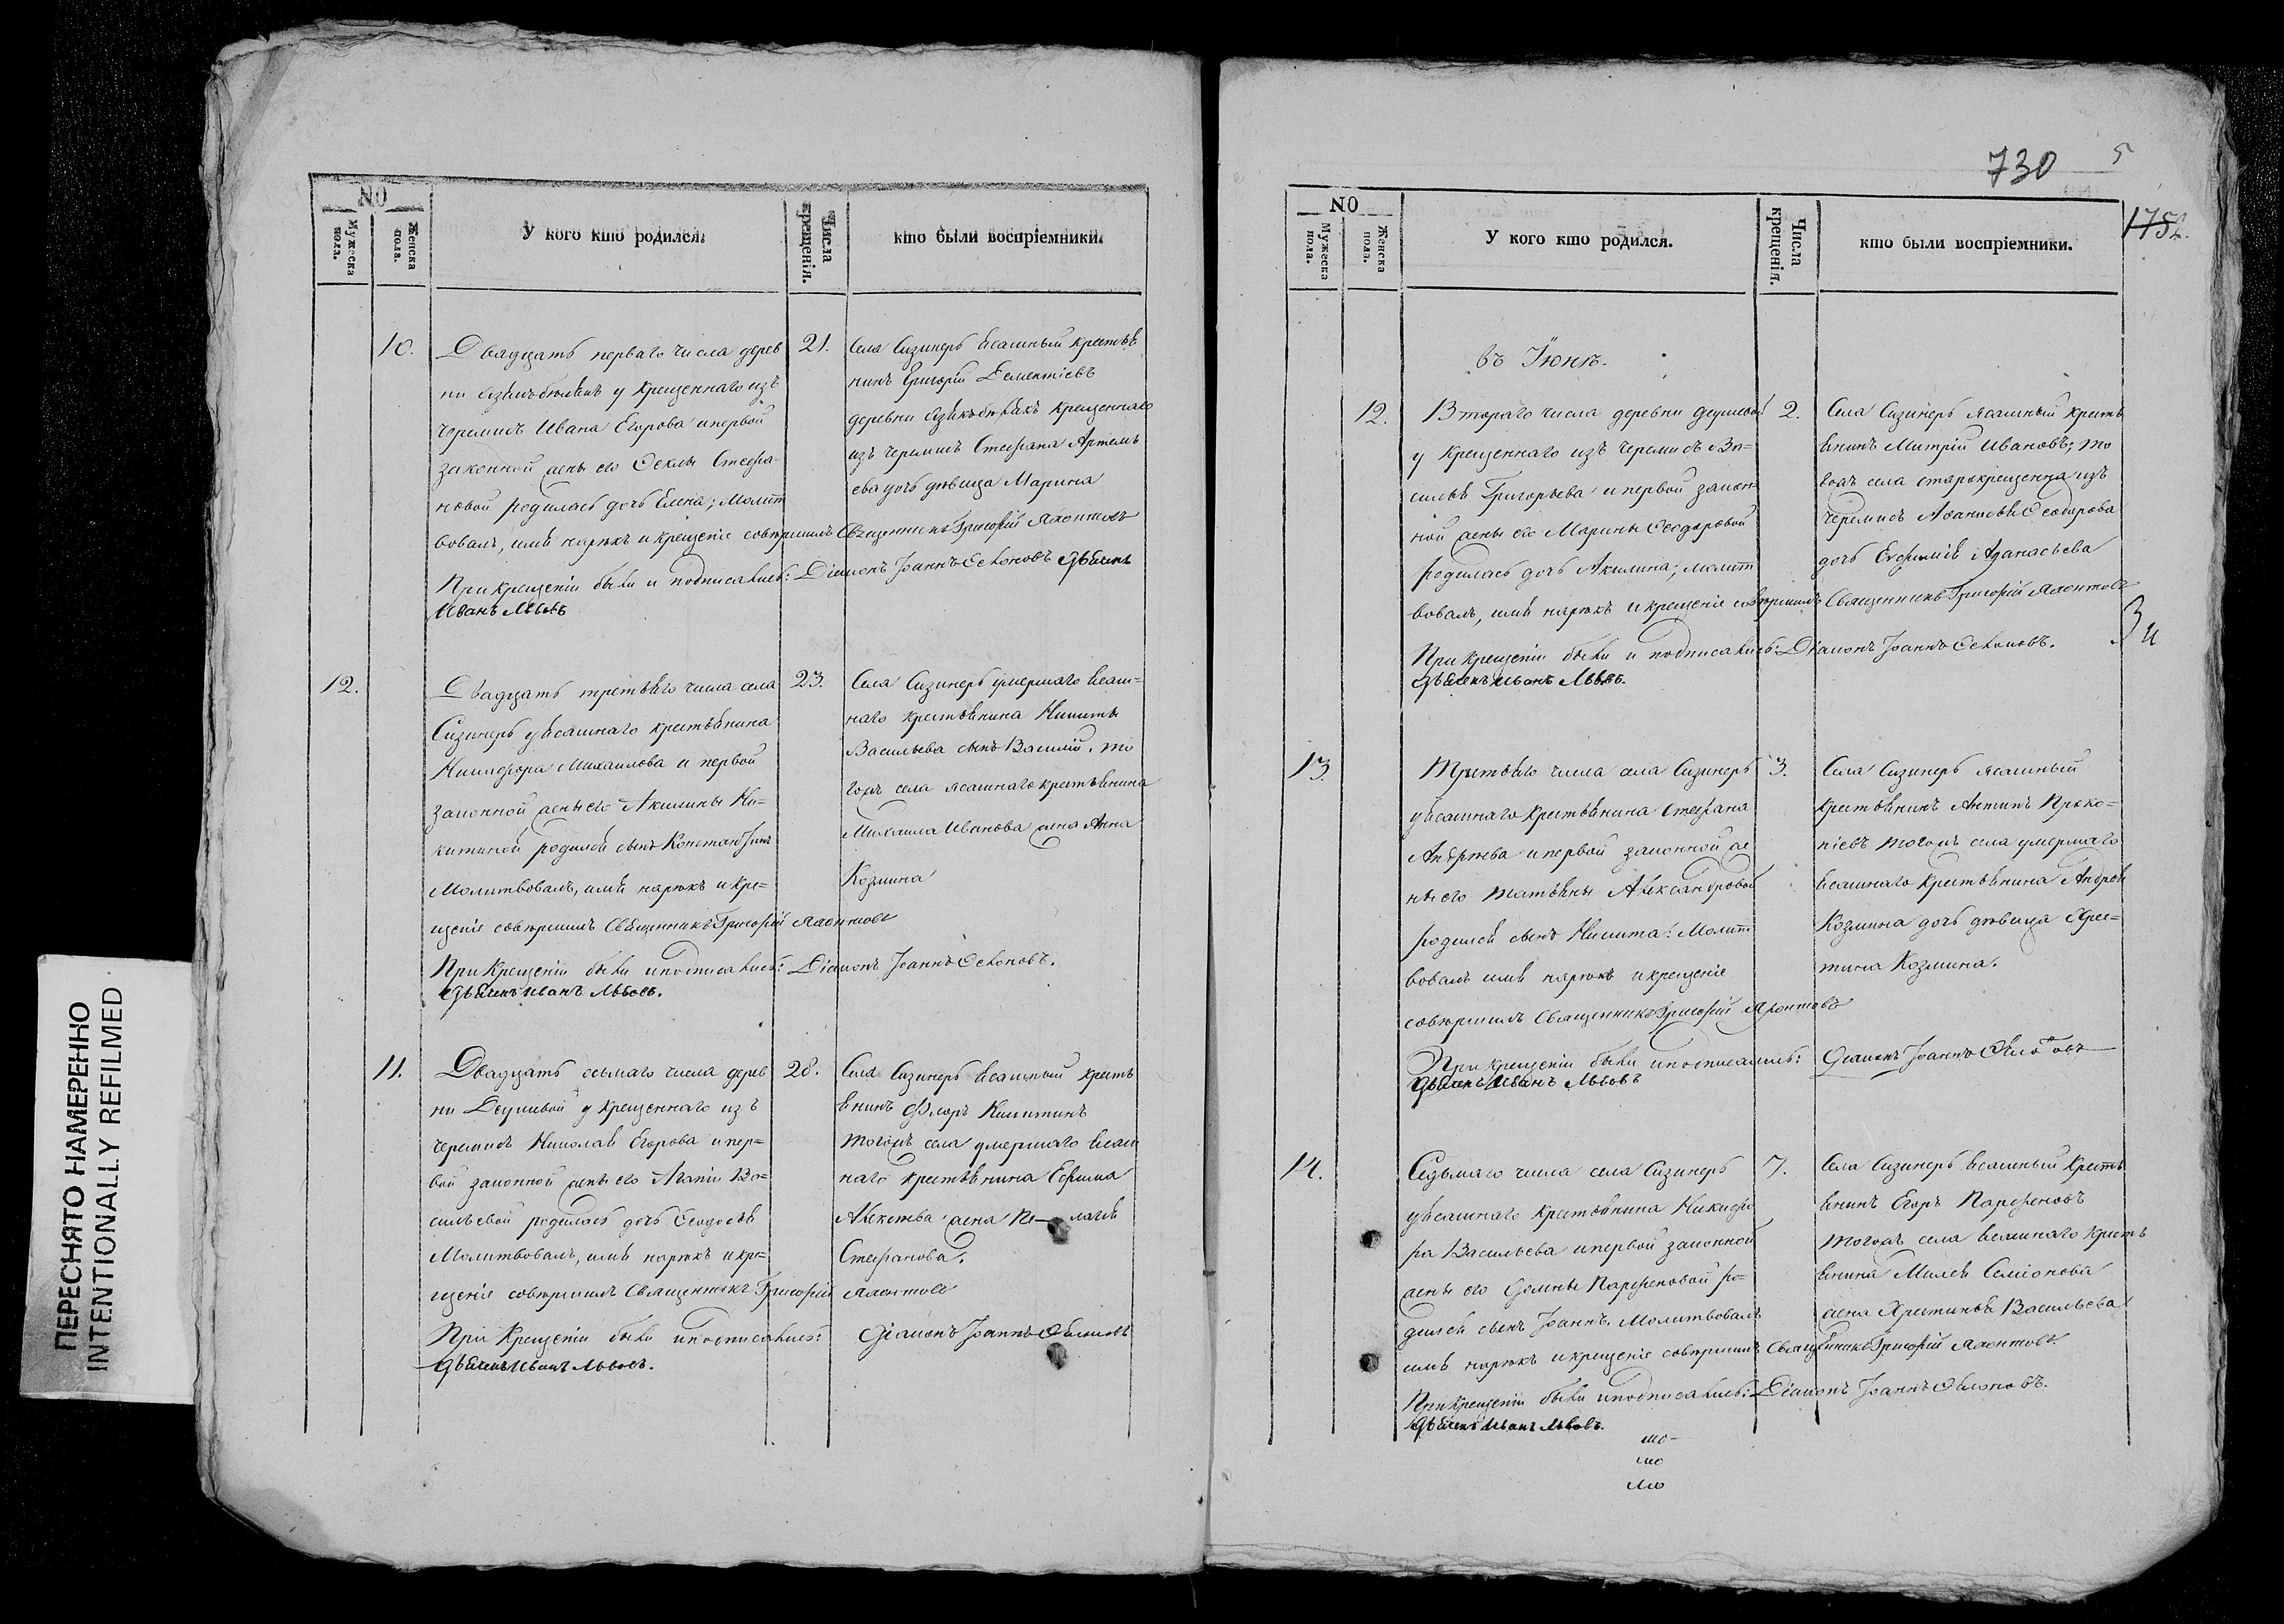 ПЕРЕСНЯТО НАМЕРЕННО
INTENTIONALLY REFILMED
NО
Мужеска пола.
Женска пола.
У кого кто родился.
Числа крещенія.
кто были воспріемники.
10.
Двадцать перваго числа дерев
ни у крещеннаго изъ
черемисъ Ивана Егорова и первой
законной жены его Ѳеклы Стефа-
новой родилась дочь Елена; Молит
вовалъ, имя нарекъ и крещеніе совершилъ Священникъ Григорій
При крещеніи были и подписались: Діаконъ Іоаннъ Дьячекъ
Иванъ Львовъ
21.
Села Сизнеръ ясашный крестья
нинъ Григорій Дементіевъ
деревни крещеннаго
изъ черемисъ Стефана Артемь
ева дочь дѣвица Марина
12.
Двадцать третьяго числа села
Сизнеръ у ясашнаго крестьянина
Никифора Михайлова и первой
законной жены его Акилины Ни-
китиной родился сынъ Константинъ
Молитвовалъ, имя нарекъ и кре-
щеніе совершилъ Священникъ Григорій
При крещеніи были и подписались: Діаконъ Іоаннъ
Дьячекъ Иванъ Львовъ.
23.
Села Сизнеръ умершаго ясаш-
наго крестьянина Никиты
Васильева сынъ Василій. то
гожъ села ясашнаго крестьянина
Михаила Иванова жена Анна
Козмина
11.
Двадцать осьмаго числа дерев
ни Деушевой у крещеннаго изъ
черемисъ Николая Егорова и пер-
вой законной жены его Агапіи Ва-
сильевой родилась дочь Ѳеодосья
Молитвовалъ, имя нарекъ и кре-
щеніе совершилъ Священникъ Григорій
При крещеніи были и подписались: Діаконъ Іоаннъ
Дьячекъ Иванъ Львовъ.
28.
Села Сизнеръ ясашный кресть
янинъ Флоръ Никитинъ
тогожъ села умершаго ясаш
наго крестьянина Ефима
Алексѣева жена Пе—лагея
Стефанова.
730
5
1752.
NО
Мужеска пола.
Женска пола.
У кого кто родился.
Числа крещенія.
кто были воспріемники.
въ Іюнѣ.
12.
Втораго числа деревни Деушевой
у крещеннаго изъ черемисъ Ва-
силья Григорьева и первой закон-
ной жены его Марины Ѳеодоровой
родилась дочь Акилина; молит
вовалъ, имя нарекъ и крещеніе совершилъ Священникъ Григорій
При крещеніи были и подписались: Діаконъ Іоаннъ
Дьячекъ Иванъ Львовъ.
2.
Села Сизнеръ ясашный кресть
янинъ Митрій Ивановъ; то
гожъ села старокрещенна изъ
черемисъ Аѳанасья Ѳеодорова
дочь Евфимія Аѳанасьева
13
Третьяго числа села Сизнеръ
у ясашнаго крестьянина Стефана
Андреева и первой законной же
ны его Татьяны Александровой
родился сынъ Никита: Молит
вовалъ имя нарекъ и крещеніе
совершилъ Священникъ Григорій
При крещеніи были и подписались: Діаконъ Іоаннъ
Дьячекъ Иванъ Львовъ
3.
Села Сизнеръ ясашный
крестьянинъ Антипъ Проко-
піевъ тогожъ села умершаго
ясашнаго крестьянина Андрея
Козмина дочь дѣвица Хрис-
тина Козмина.
14.
Седьмаго числа села Сизнеръ
у ясашнаго крестьянина Никифо
ра Васильева и первой законной
жены его Домны Парфеновой ро-
дился сынъ Іоаннъ. Молитвовалъ
имя нарекъ и крещеніе совершилъ Священникъ Григорій
При крещеніи были и подписались: Діаконъ Іоаннъ
Дьячекъ Иванъ Львовъ.
7.
Села Сизнеръ ясашный кресть
янинъ Егоръ Парфеновъ
тогожъ села ясашнаго кресть
янина Милея Семіонова
жена Христинья Васильева